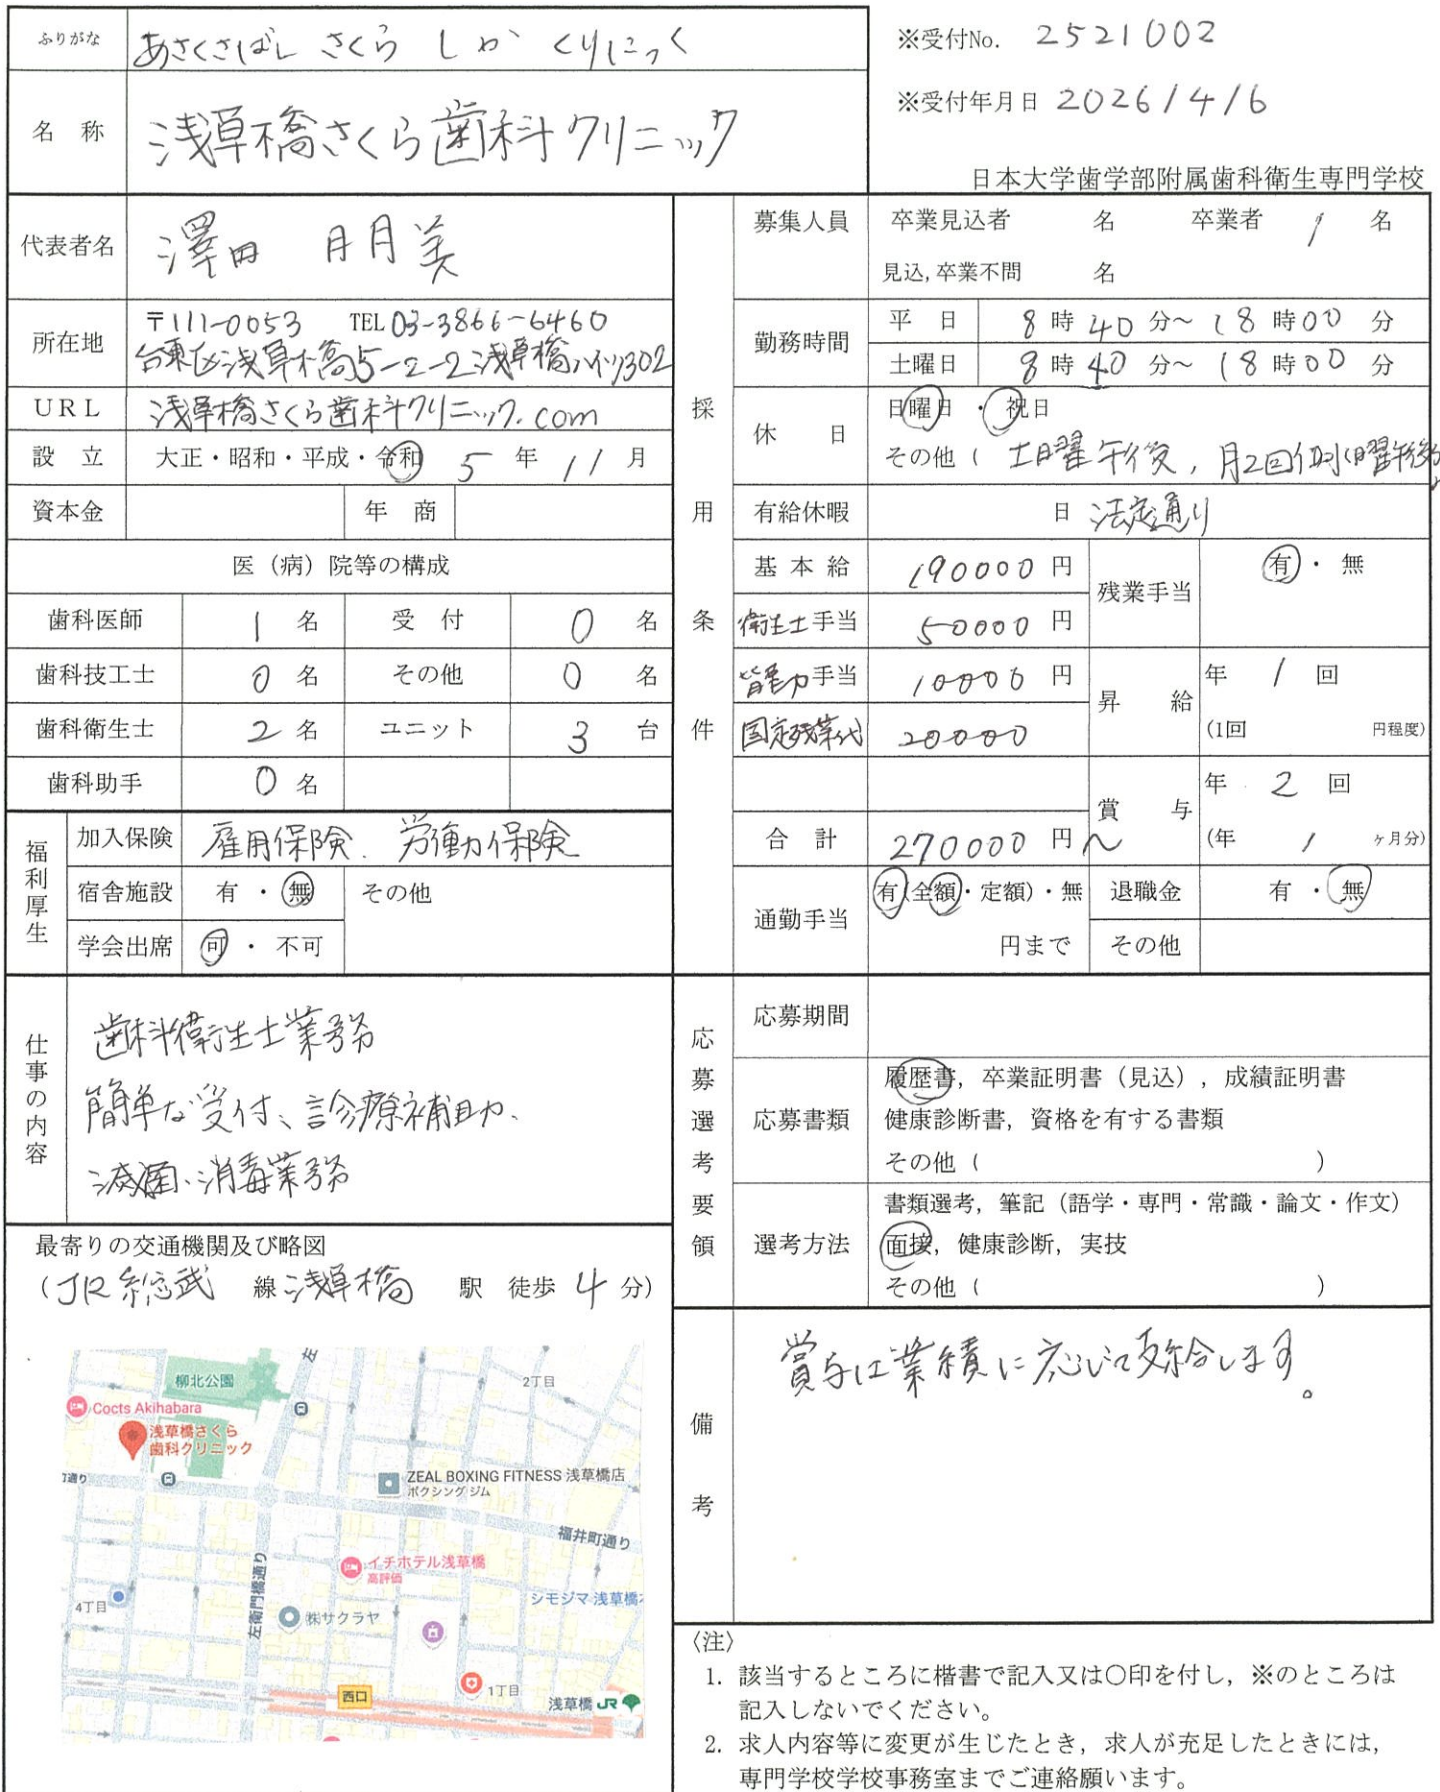 ふりがな あさくさばし さくら しか くりにっく
※受付No. 2521002
名 称 浅草橋さくら歯科クリニック
※受付年月日 2026/4/6
日本大学歯学部附属歯科衛生専門学校
代表者名 澤田 明美
所在地 〒111-0053 TEL 03-3866-6460
台東区浅草橋5-2-2浅草橋ハイツ302
URL 浅草橋さくら歯科クリニック.com
設 立 大正・昭和・平成・令和 5 年 11 月
資本金 年 商
医(病)院等の構成
歯科医師 1 名 受 付 0 名
歯科技工士 0 名 その他 0 名
歯科衛生士 2 名 ユニット 3 台
歯科助手 0 名
福利厚生
加入保険 雇用保険、労働保険
宿舎施設 有・無 その他
学会出席 可・不可
仕事の内容
歯科衛生士業務
簡単な受付、診療補助、
滅菌、消毒業務
最寄りの交通機関及び略図
(JR総武 線 浅草橋 駅 徒歩 4 分)
柳北公園
Cocts Akihabara
浅草橋さくら
歯科クリニック
2丁目
ZEAL BOXING FITNESS 浅草橋店
ボクシング ジム
福井町通り
イチホテル浅草橋
高評価
シモジマ 浅草橋
4丁目
左衛門橋通り
㈱サクラヤ
1丁目
西口
浅草橋 JR
採用条件
募集人員 卒業見込者 名 卒業者 1 名
見込,卒業不問 名
勤務時間 平 日 8 時 40 分~ 18 時 00 分
土曜日 8 時 40 分~ 18 時 00 分
休 日 日曜日・祝日
その他( 土曜午後,月2回
有給休暇 日 法定通り
基 本 給 190000 円 残業手当 有・無
衛生士手当 50000 円
皆勤手当 10000 円 昇 給 年 1 回
固定残業代 20000 (1回 円程度)
賞 与 年 2 回
合 計 270000 円~ (年 1 ヶ月分)
通勤手当 有(全額・定額)・無 退職金 有・無
円まで その他
応募選考要領
応募期間
応募書類 履歴書,卒業証明書(見込),成績証明書
健康診断書,資格を有する書類
その他( )
選考方法 書類選考,筆記(語学・専門・常識・論文・作文)
面接,健康診断,実技
その他( )
備考
賞与は業績に応じて支給します。
〈注〉
1. 該当するところに楷書で記入又は〇印を付し,※のところは
記入しないでください。
2. 求人内容等に変更が生じたとき,求人が充足したときには,
専門学校学校事務室までご連絡願います。